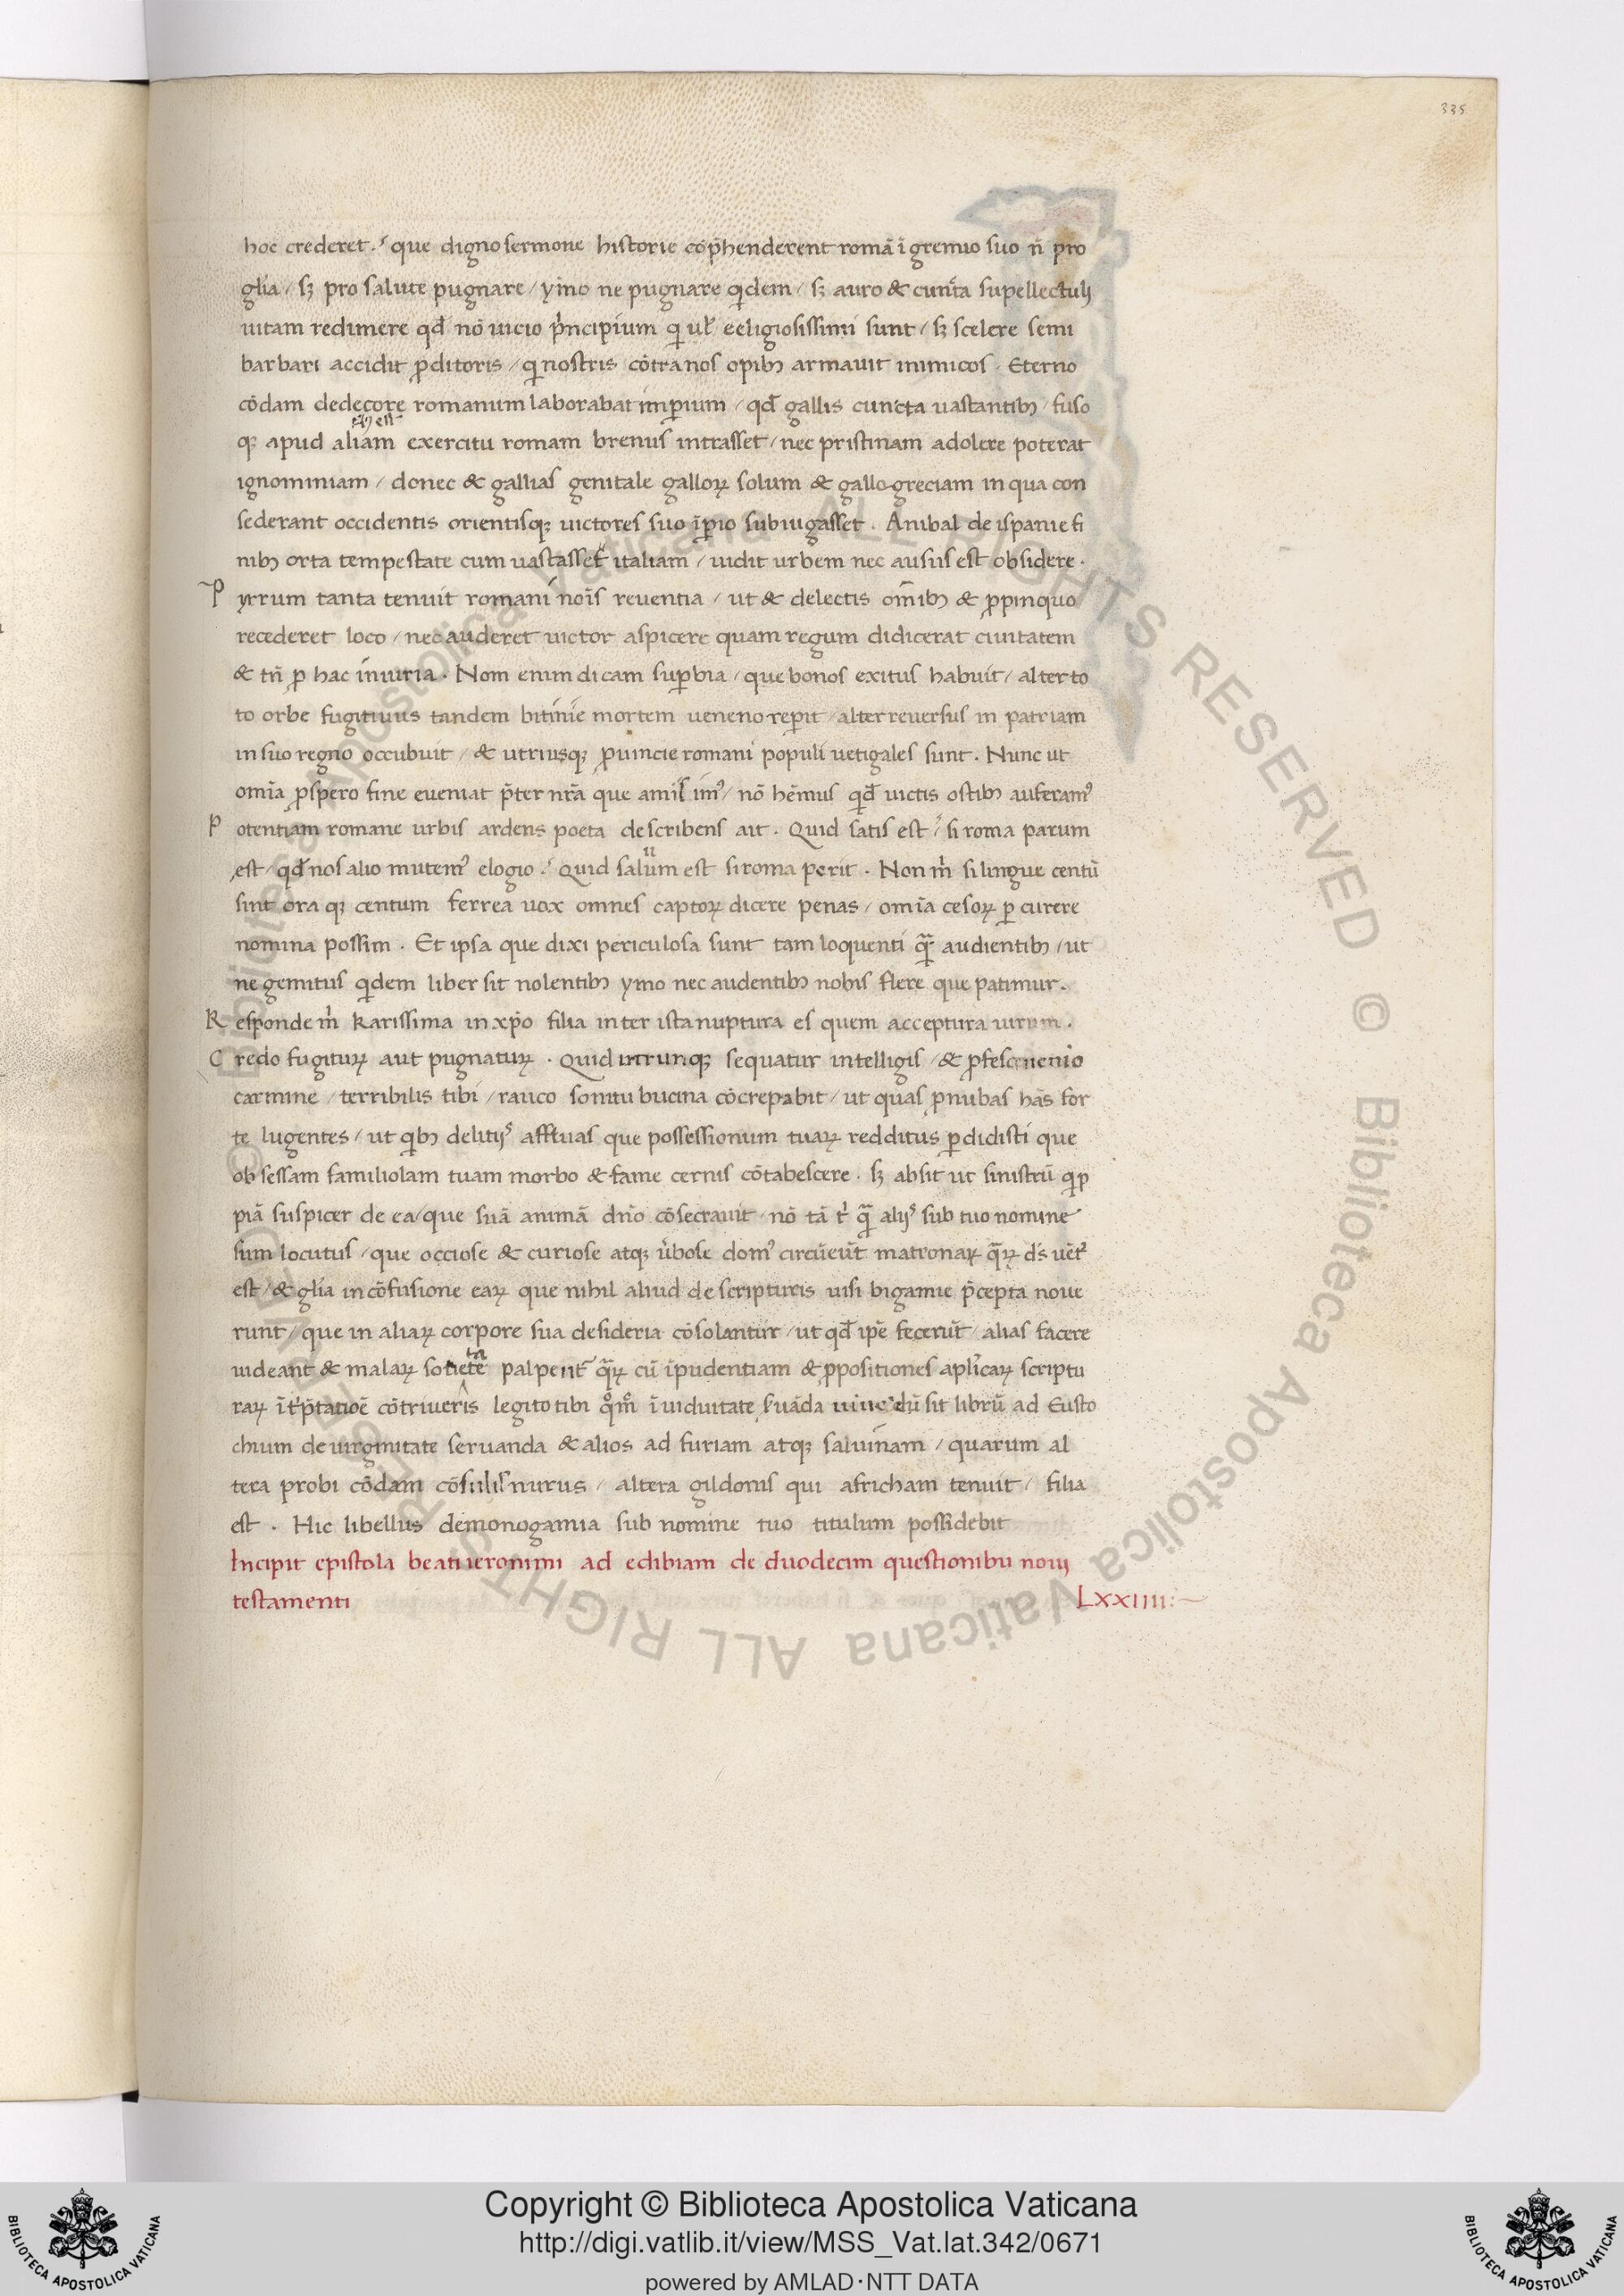 335
hoc crederet.ˢ que digno sermone historie cōp̄henderent romā ī gremio suo n̄ pro
gl̄ia / sꝫ pro salute pugnare / ymo ne pugnare qͥdem / sꝫ auro & cun̄ta supellectulj
uitam redimere qd̄ nō uicio pͥncipium qͥ ul̓ eeligiosissimi sunt / sꝫ scelere semi
barbari accidit ꝓditoris / qͥ nostris cōtra nos opibꝫ armauit inimicos . Eterno
cōdam dedecore romanum laborabat imꝑium / qd̄ gallis cuncta uastantibꝫ / fuso
qꝫ apud aliam exercitu romam brenus intrasset / nec pristinam adolere poterat
ignominiam / donec & gallias genitale galloꝝ solum & gallogreciam in qua con
sederant occidentis orientisqꝫ uictores suo īꝑio subiugasset . Anibal de ispanie fi
nibꝫ orta tempestate cum uastasset italiam / uidit urbem nec ausus est obsidere .
P yrrum tanta tenuit romani nōis reuentia / ut & delectis om̄ibꝫ & ꝓpinquo
recederet loco / nec auderet uictor aspicere quam regum didicerat ciuitatem
& tn̄ ꝓ hac iniuria . Nom enim dicam suꝑbia / que bonos exitus habuit / alter to
to orbe fugitiuus tandem bitinie mortem ueneno reꝑit / alter reuersus in patriam
in suo regno occubuit / & utriusqꝫ ꝓuincie romani populi uetigales sunt . Nunc ut
om̄ia ꝓspero fine eueniat p̄ter nr̄a que amisimꝰ / nō hēmus qd̄ uictis ostibꝫ auferamꝰ
P otentiam romane urbis ardens poeta describens ait . Quid satis est ˢ si roma parum
est / qd̄ nos alio mutemꝰ elogio .ˢ Quid saluum est si roma perit . Non m̓ si lingue centū
sint ora qꝫ centum ferrea uox omnes captoꝝ dicere penas / om̄ia cesoꝝ ꝑcurere
nomina possim . Et ipsa que dixi periculosa sunt tam loquenti qͣ̄ audientibꝫ / ut
ne gemitus qͥdem liber sit nolentibꝫ ymo nec audentibꝫ nobis flere que patimur .
R esponde m̓ karissima in xp̄o filia inter ista nuptura es quem acceptura uirum .
C redo fugituꝝ aut pugnatuꝝ . Quid utrunqꝫ sequatur intelligis / & ꝓ fescnenio
carmine / terribilis tibi / rauco sonitu bucina cōcrepabit / ut quas ꝓnubas hās for
te lugentes / ut qͥbꝫ delitijˢ afftuas que possessionum tuaꝝ redditus ꝑdidisti que
obsessam familiolam tuam morbo & fame cernis cōtabescere . sꝫ absit ut sinistrū qͥp
piā suspicer de ea / que suā animā dn̄o cōsecrauit / nō tā t̓ qͣ̄ alijˢ sub tuo nomine
sum locutus / que occiose & curiose atqꝫ u̓bose domꝰ circūeūt matronaꝝ qͣ̄ꝝ ds̄ uēt̓
est / & gl̄ia in cōfusione eaꝝ que nihil aliud de scripturis uisi bigamie p̄cepta noue
runt / que in aliaꝝ corpore sua desideria cōsolantur / ut qd̄ ip̄e fecerūt / alias facere
uideant & malaꝝ sotietatē palpent̓ qͣ̄ꝝ cū īpudentiam & ꝓpositiones apl̓icaꝝ scriptu
raꝝ īt̓p̄tatiōe cōtriueris legito tibi qͦm̊ ī uiduitate suāda dū sit librū ad Eusto
chium de uirginitate seruanda & alios ad furiam atqꝫ saluinam / quarum al
tera probi cōdam cōsulis nurus / altera gildonis qui africham tenuit / filia
est . Hic libellus demonogamia sub nomine tuo titulum possidebit
Incipit epistola beati ieronimi ad edibiam de duodecim questionibu nouj
testamenti LXXIIII:~
© Biblioteca Apostolica Vaticana ALL RIGHTS RESERVED © Biblioteca Apostolica Vaticana ALL RIGHT
Copyright © Biblioteca Apostolica Vaticana
http://digi.vatlib.it/view/MSS_Vat.lat.342/0671
powered by AMLAD·NTT DATA
BIBLIOTECA APOSTOLICA VATICANA
BIBLIOTECA APOSTOLICA VATICANA